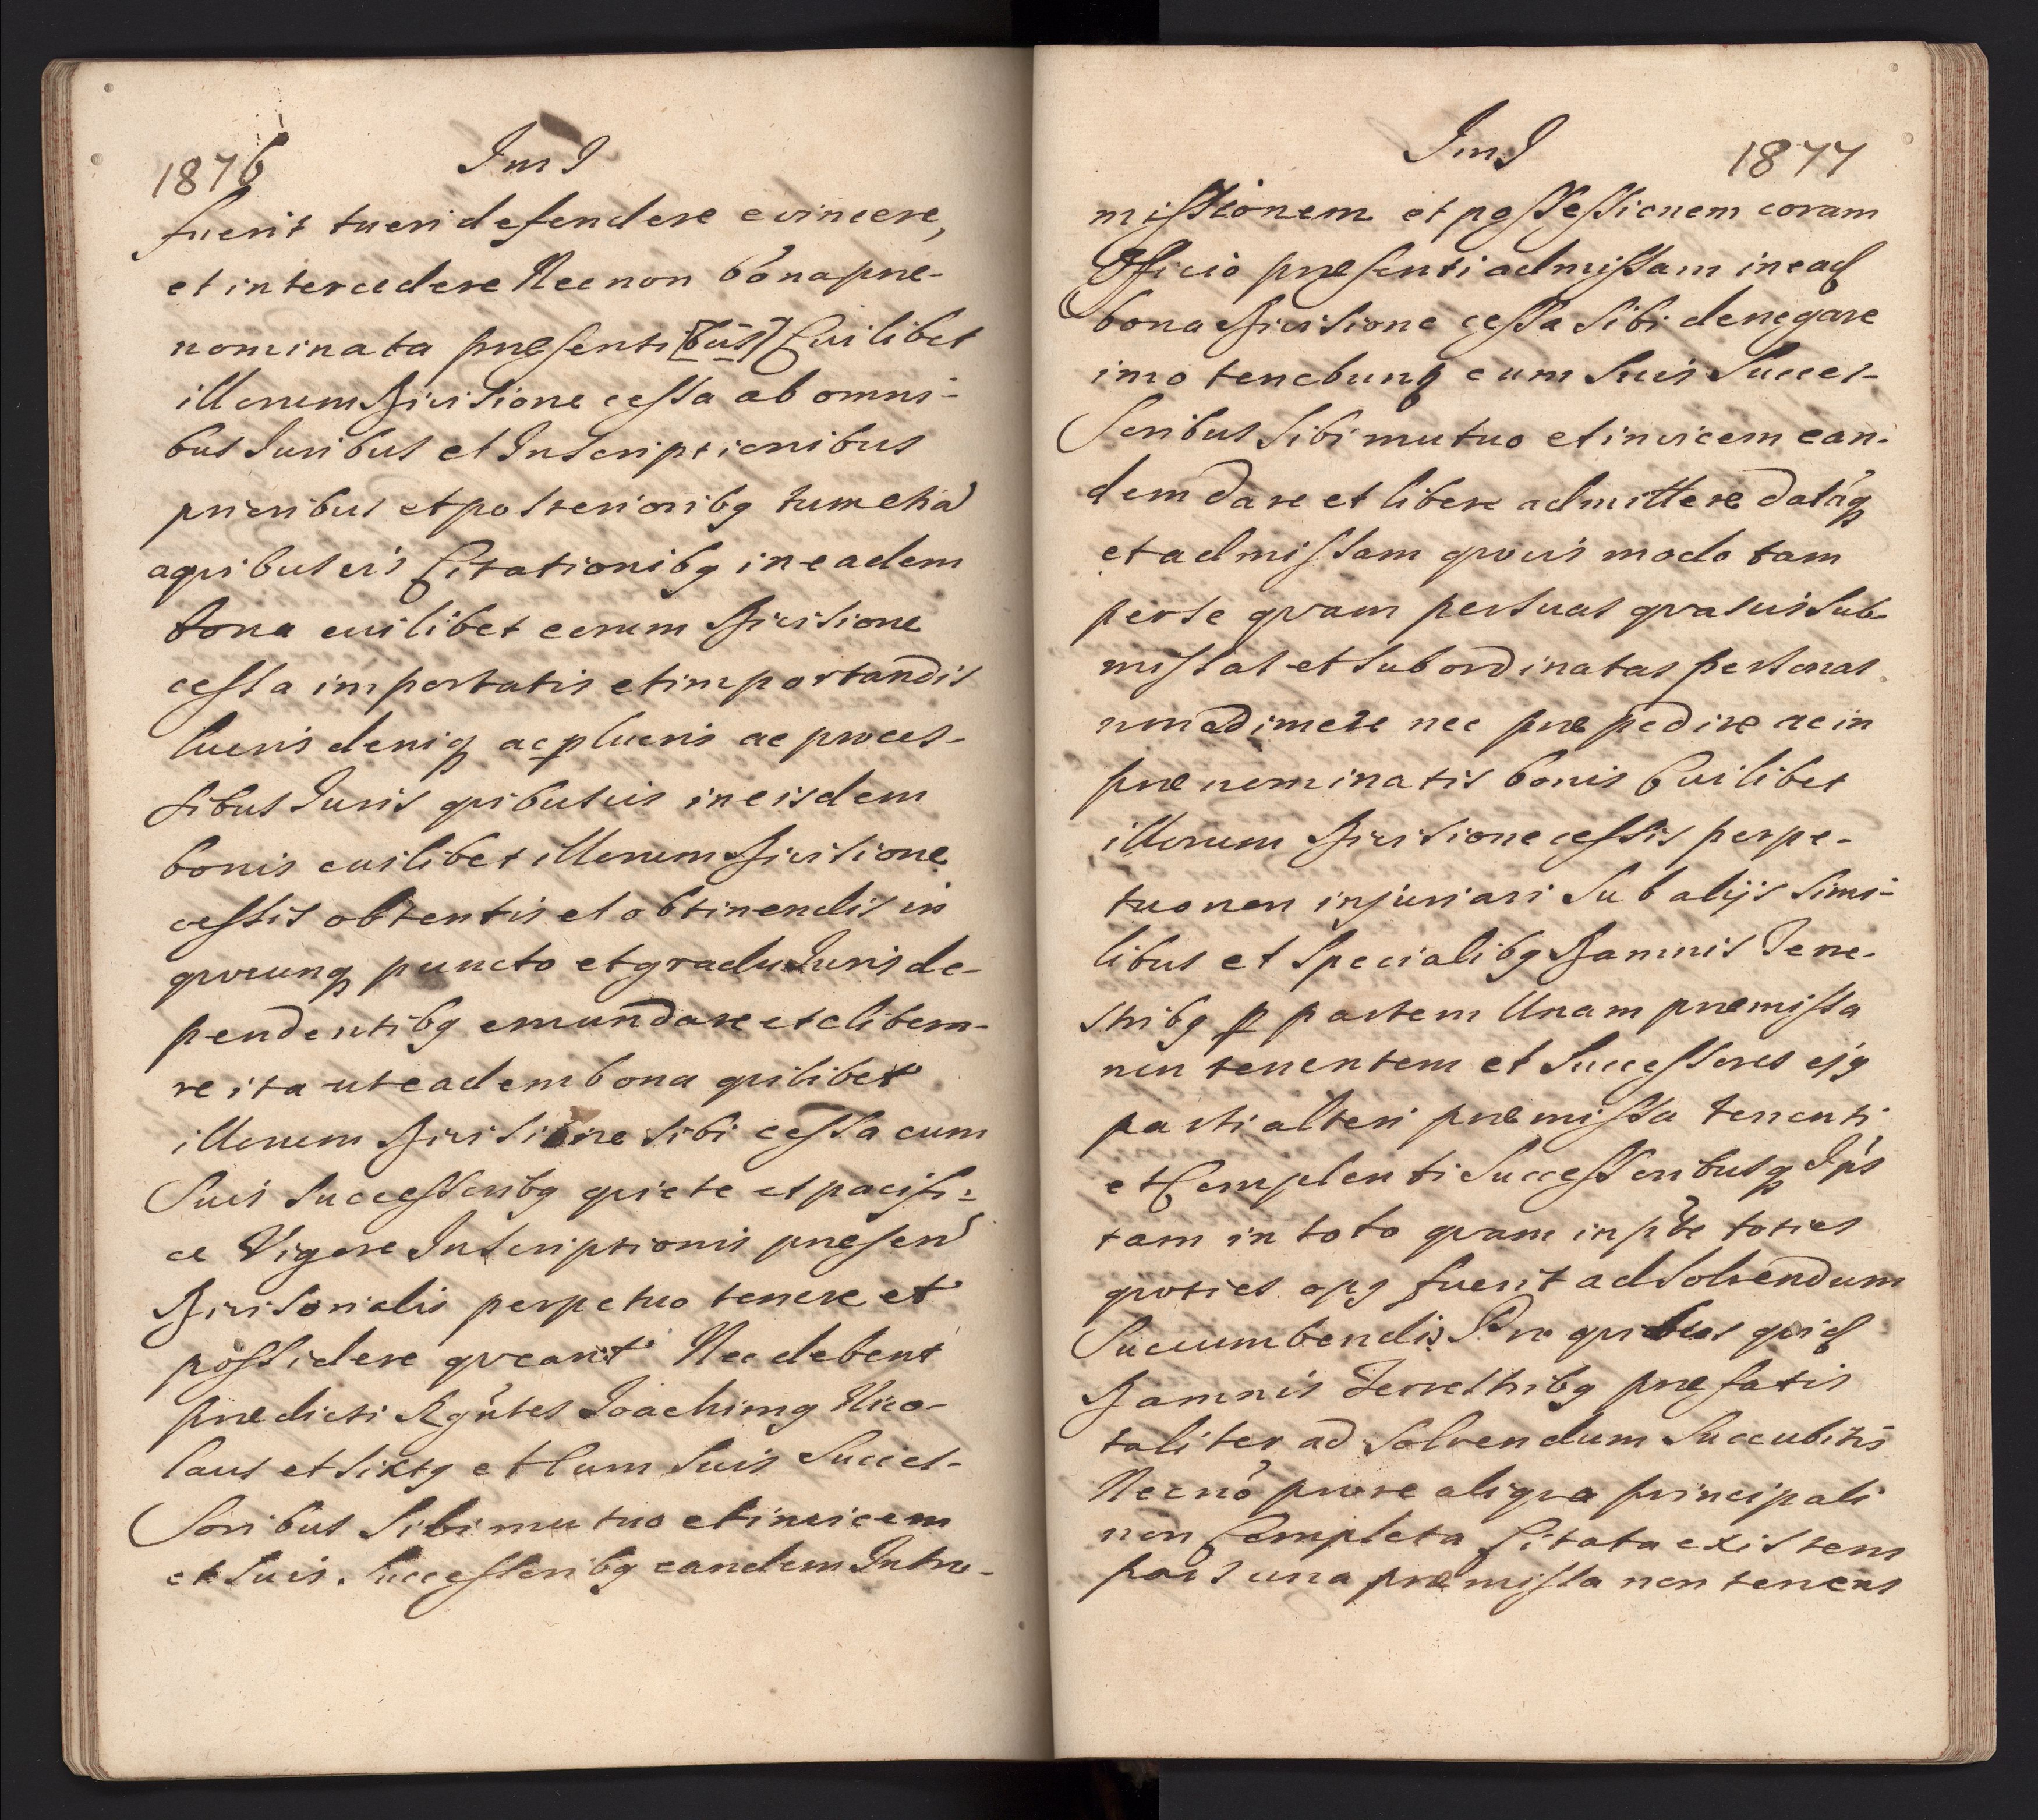 1876
Im I
fuerit tueri defendere evincere,
et intercedere Necnon bona præ-
nominata præsenti[bus] Cuilibet
illorum divisione cessa ab omni-
bus Juribus et Inscriptionibus
prioribus et posterioribq tum etia
aqvibusvis Citationibq in eadem
bona cuilibet eorum divisione
cessa importatis et importandis
lucris deniq ac plucris ac proces-
sibus Juris qvibusvis in eisdem
bonis cuilibet illorum divisione
cessis obtentis et obtinendis in
qvocunq puncto et gradu Juris de-
pendentibq emundare et libera-
re ita ut eadem bona qvilibet
illorum divisione sibi cessa cum
Suis Successoribq qviete et pacifi-
ce Vigore Inscriptionis præsen
divisorialis perpetuo tenere et
possidere qveant Nec debent
prædicti Rgntes Joachimq Nico-
laus et Sixtq et Cum Suis Succes-
Soribus Sibi mutuo et invicem
et Suis Successoribq eandem Intro-
Im I
1877
missionem et possessionem coram
Officio præsenti admissam in ead
bona divisione cessa Sibi denegare
imo tenebunt cum Suis Succes-
Soribus Sibi mutuo et invicem ean-
dem dare et libere admittere datáq
et admissam qvovis modo tam
per se qvam per suas qvasvis Sub-
missas et Subordinatas personas
non adimere nec præpedire ac in
prænominatis bonis Cuilibet
illorum divisione cessis perpe-
tuo non injuriari Sub alijs Simi-
libus et Specialibq damnis Terre-
stribq p partem Unam præmissa
non tenentem et Successores ejq
parti alteri præmissa tenenti
et Complenti Successoribusq Ips
tam in toto qvam in pte toties
qvoties opq fuerit ad Solvendum
Succumbendis Pro qvibus qvid
damnis Terrestribq præfatis
taliter ad Solvendum Succubitis
Necnō pro re aliqva principali
non Completa Citata existens
pars una præmissa non tenens